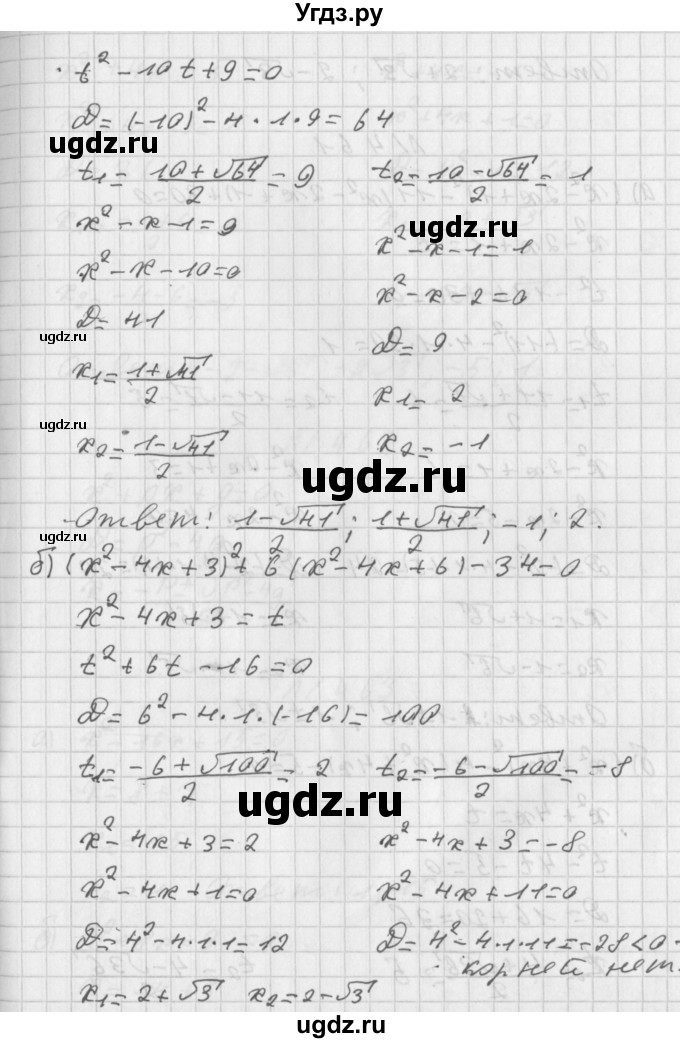 Угдз.ру
t² - 10t + 9 = 0
D = (-10)² - 4 · 1 · 9 = 64
ugdz.ru
t₁ = (10 + √64)/2 = 9    t₂ = (10 - √64)/2 = 1
x² - x - 1 = 9    x² - x - 1 = 1
ugdz.ru
x² - x - 10 = 0    x² - x - 2 = 0
D = 41    D = 9
ugdz.ru
x₁ = (1 + √41)/2    x₁ = 2
x₂ = (1 - √41)/2    x₂ = -1
ugdz.ru
Ответ: (1 - √41)/2; (1 + √41)/2; -1; 2.
б) (x² - 4x + 3)² + 6(x² - 4x + 6) - 34 = 0
x² - 4x + 3 = t
ugdz.ru
t² + 6t - 16 = 0
D = 6² - 4 · 1 · (-16) = 100
t₁ = (-6 + √100)/2 = 2    t₂ = (-6 - √100)/2 = -8
ugdz.ru
ugdz.ru
x² - 4x + 3 = 2    x² - 4x + 3 = -8
x² - 4x + 1 = 0    x² - 4x + 11 = 0
D = 4² - 4 · 1 · 1 = 12    D = 4² - 4 · 1 · 11 = -28 < 0 -
ugdz.ru
корней нет.
x₁ = 2 + √3    x₂ = 2 - √3
ugdz.ru